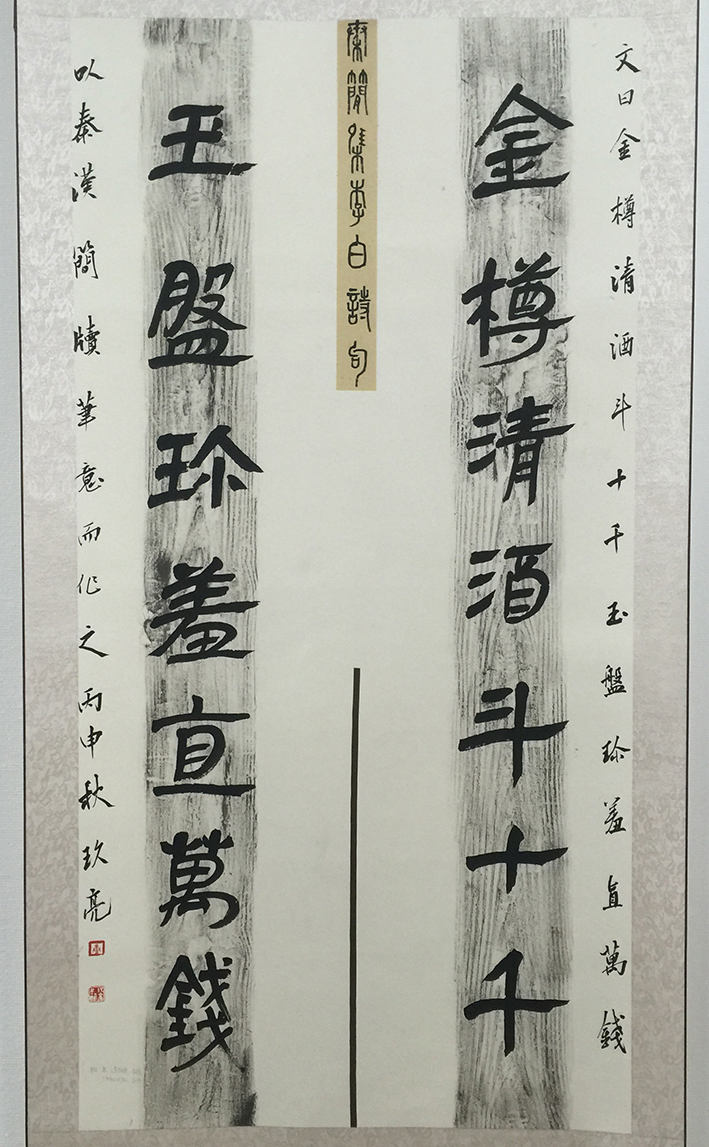 文曰金樽清酒斗十千玉盤珍羞直萬錢
金樽清酒斗十千
秦簡集李白詩句
玉盤珍羞直萬錢
以秦漢簡牘筆意而作之丙申秋玖亮